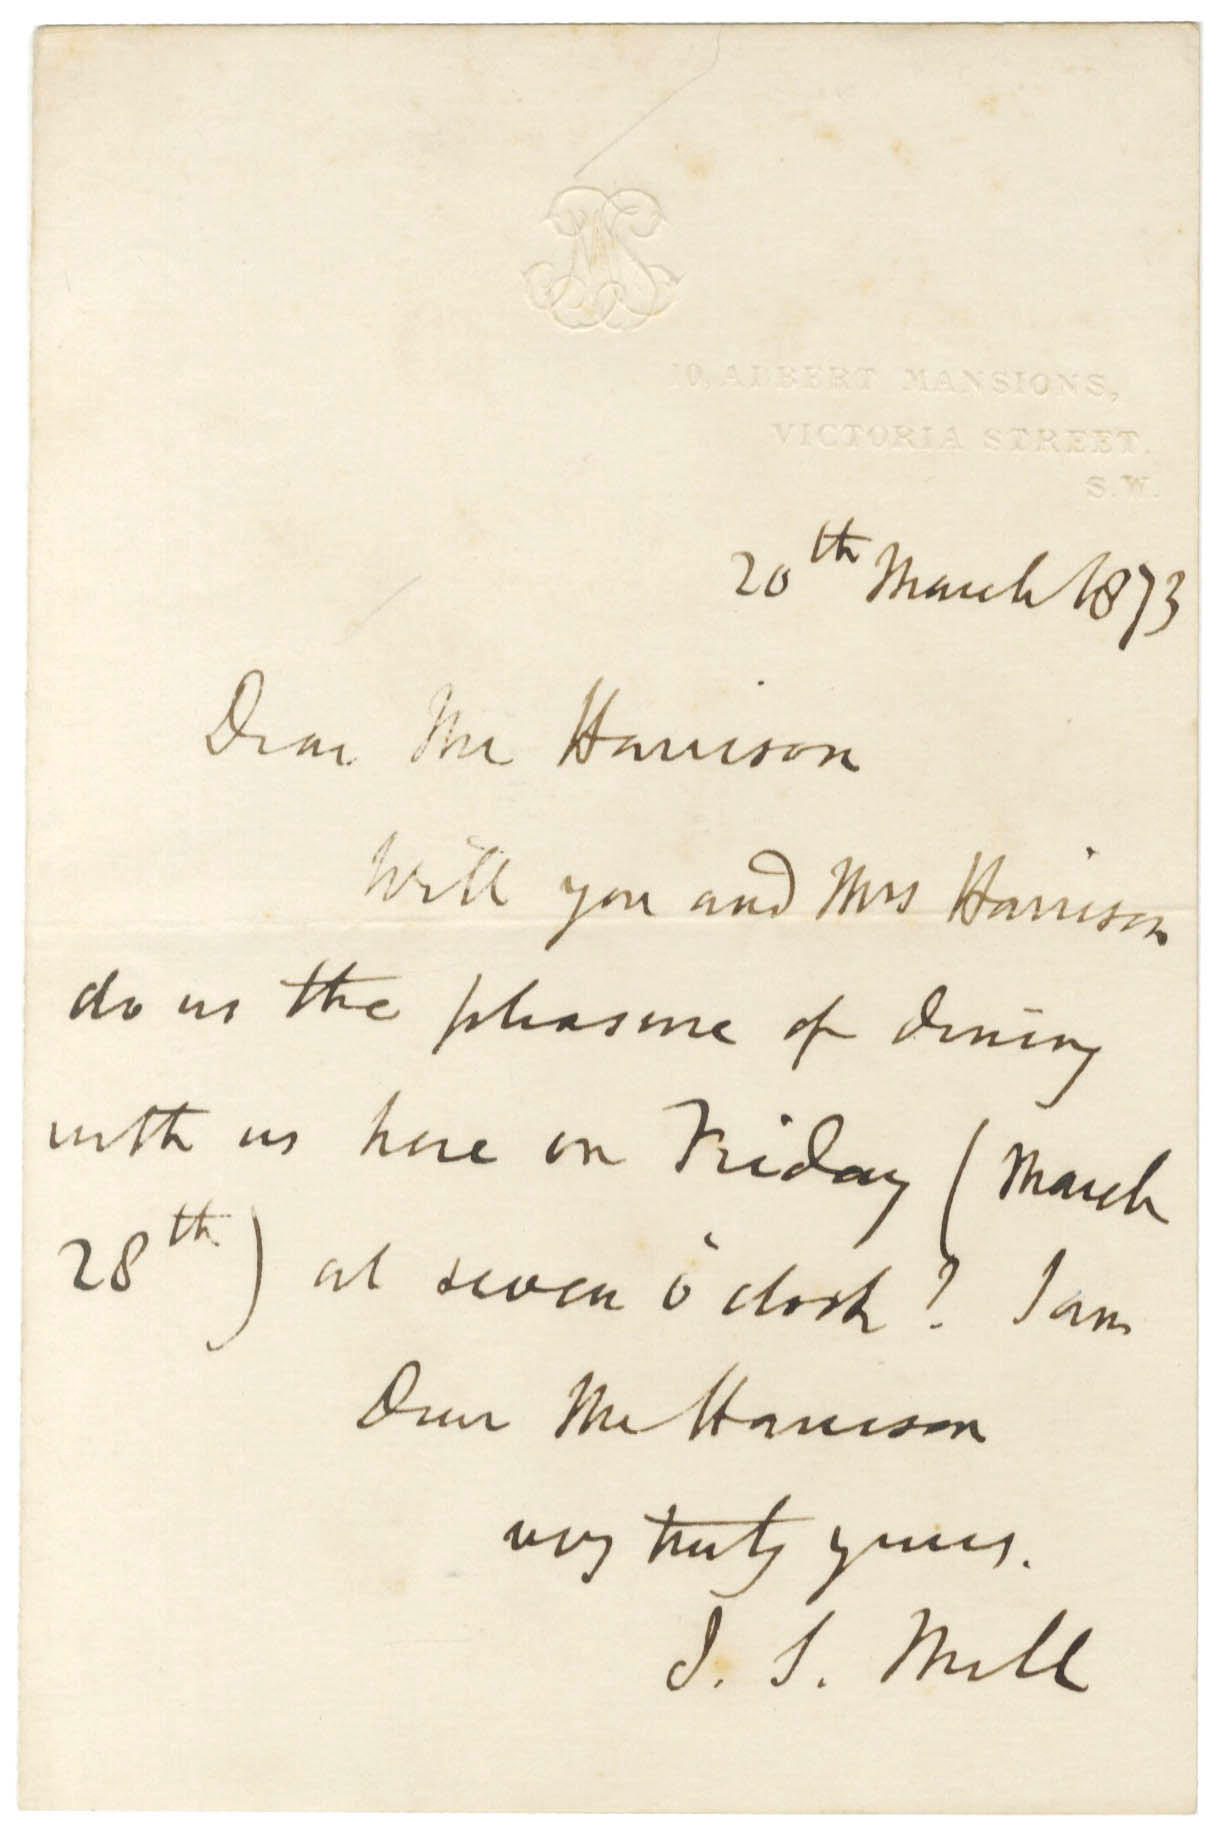 10, ALBERT MANSIONS,
VICTORIA STREET.
S.W.
20th March 1873
Dear Mr Harrison
Will you and Mrs Harrison
do us the pleasure of dining
with us here on Friday (March
28th) at seven o'clock? I am
Dear Mr Harrison
very truly yours.
J. S. Mill